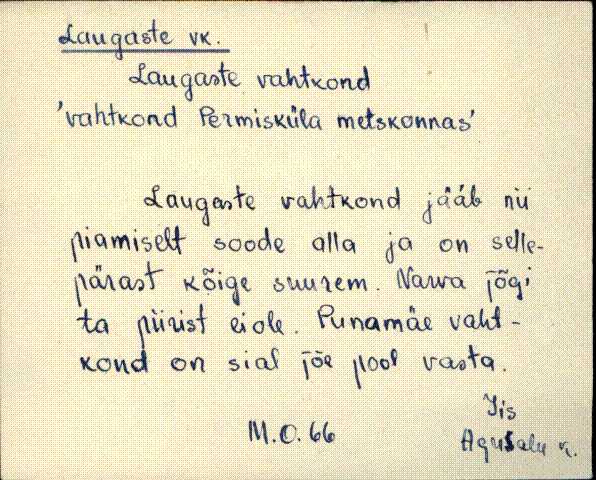 Laugaste vk.
Laugaste vahtkond
'vahtkond Permisküla metskonnas'
Laugaste vahtkond jääb nii
piamiselt soode alla ja on selle-
pärast kõige suurem. Narva jõgi
ta piirist ei ole. Punamäe vaht-
kond on sial jõe pool vasta.
Iis
M.O. 66
Agusalu k.